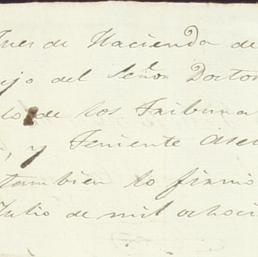 Juez de Hacienda de
ijo del Señor Doctor
do de los Tribuna
, y Teniente Ases
tambien lo firmó
Julio de mil ochoci